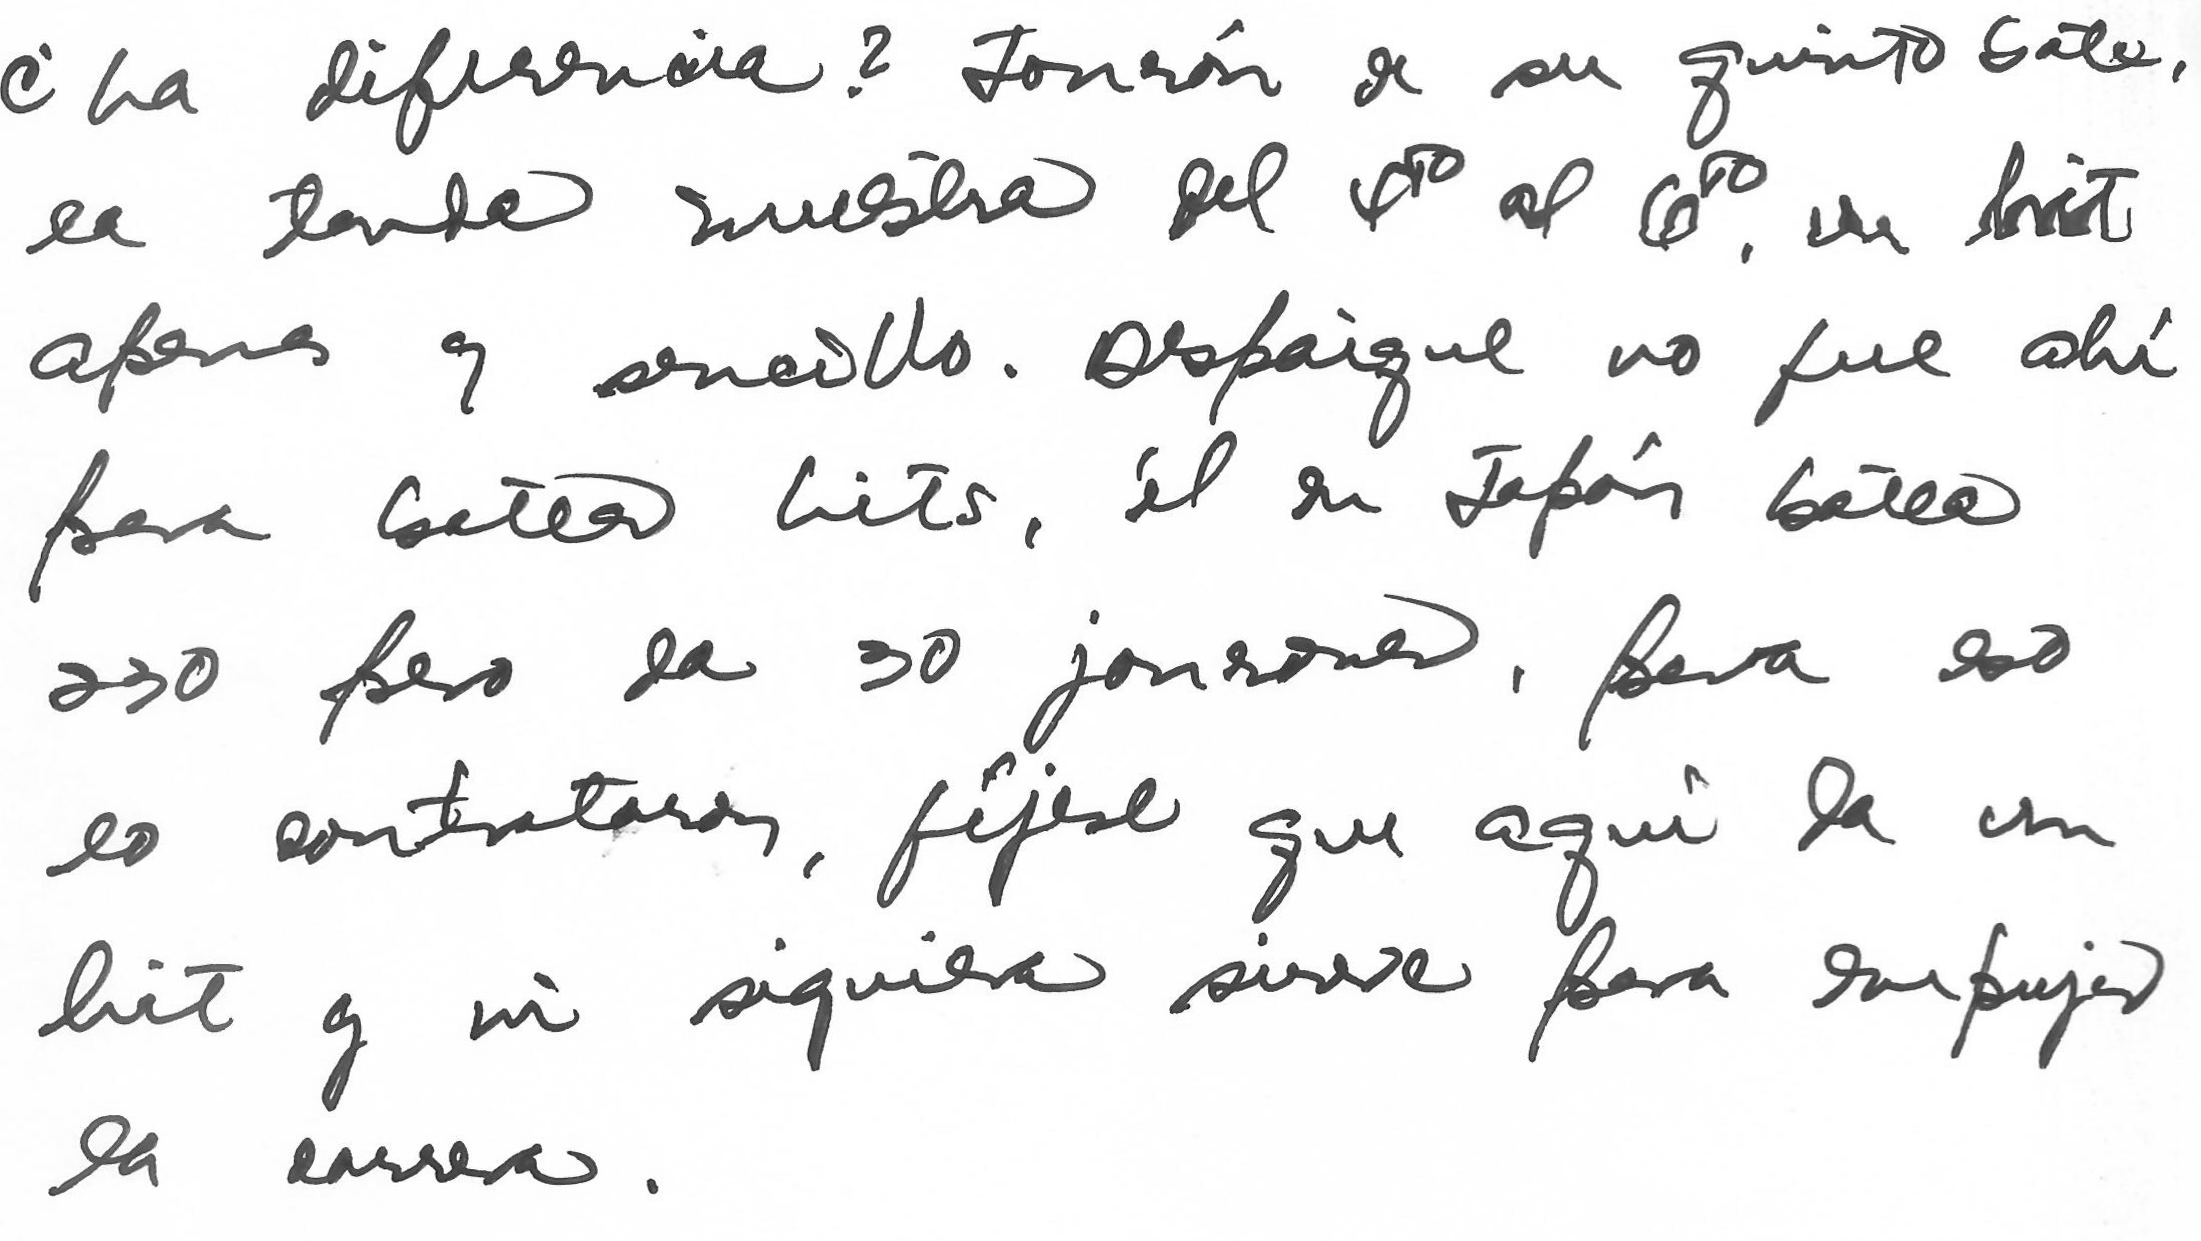 ¿La diferencia? Jonrón de su quinto bate,
la tanda nuestra del 4to al 6to, un hit
apenas y sencillo. Despaigne no fue ahí
para batear hits, él en Japón batea
230 pero da 30 jonrones, para eso
lo contrataron, fíjese que aquí da un
hit y ni siquiera sirve para empujar
la carrera.